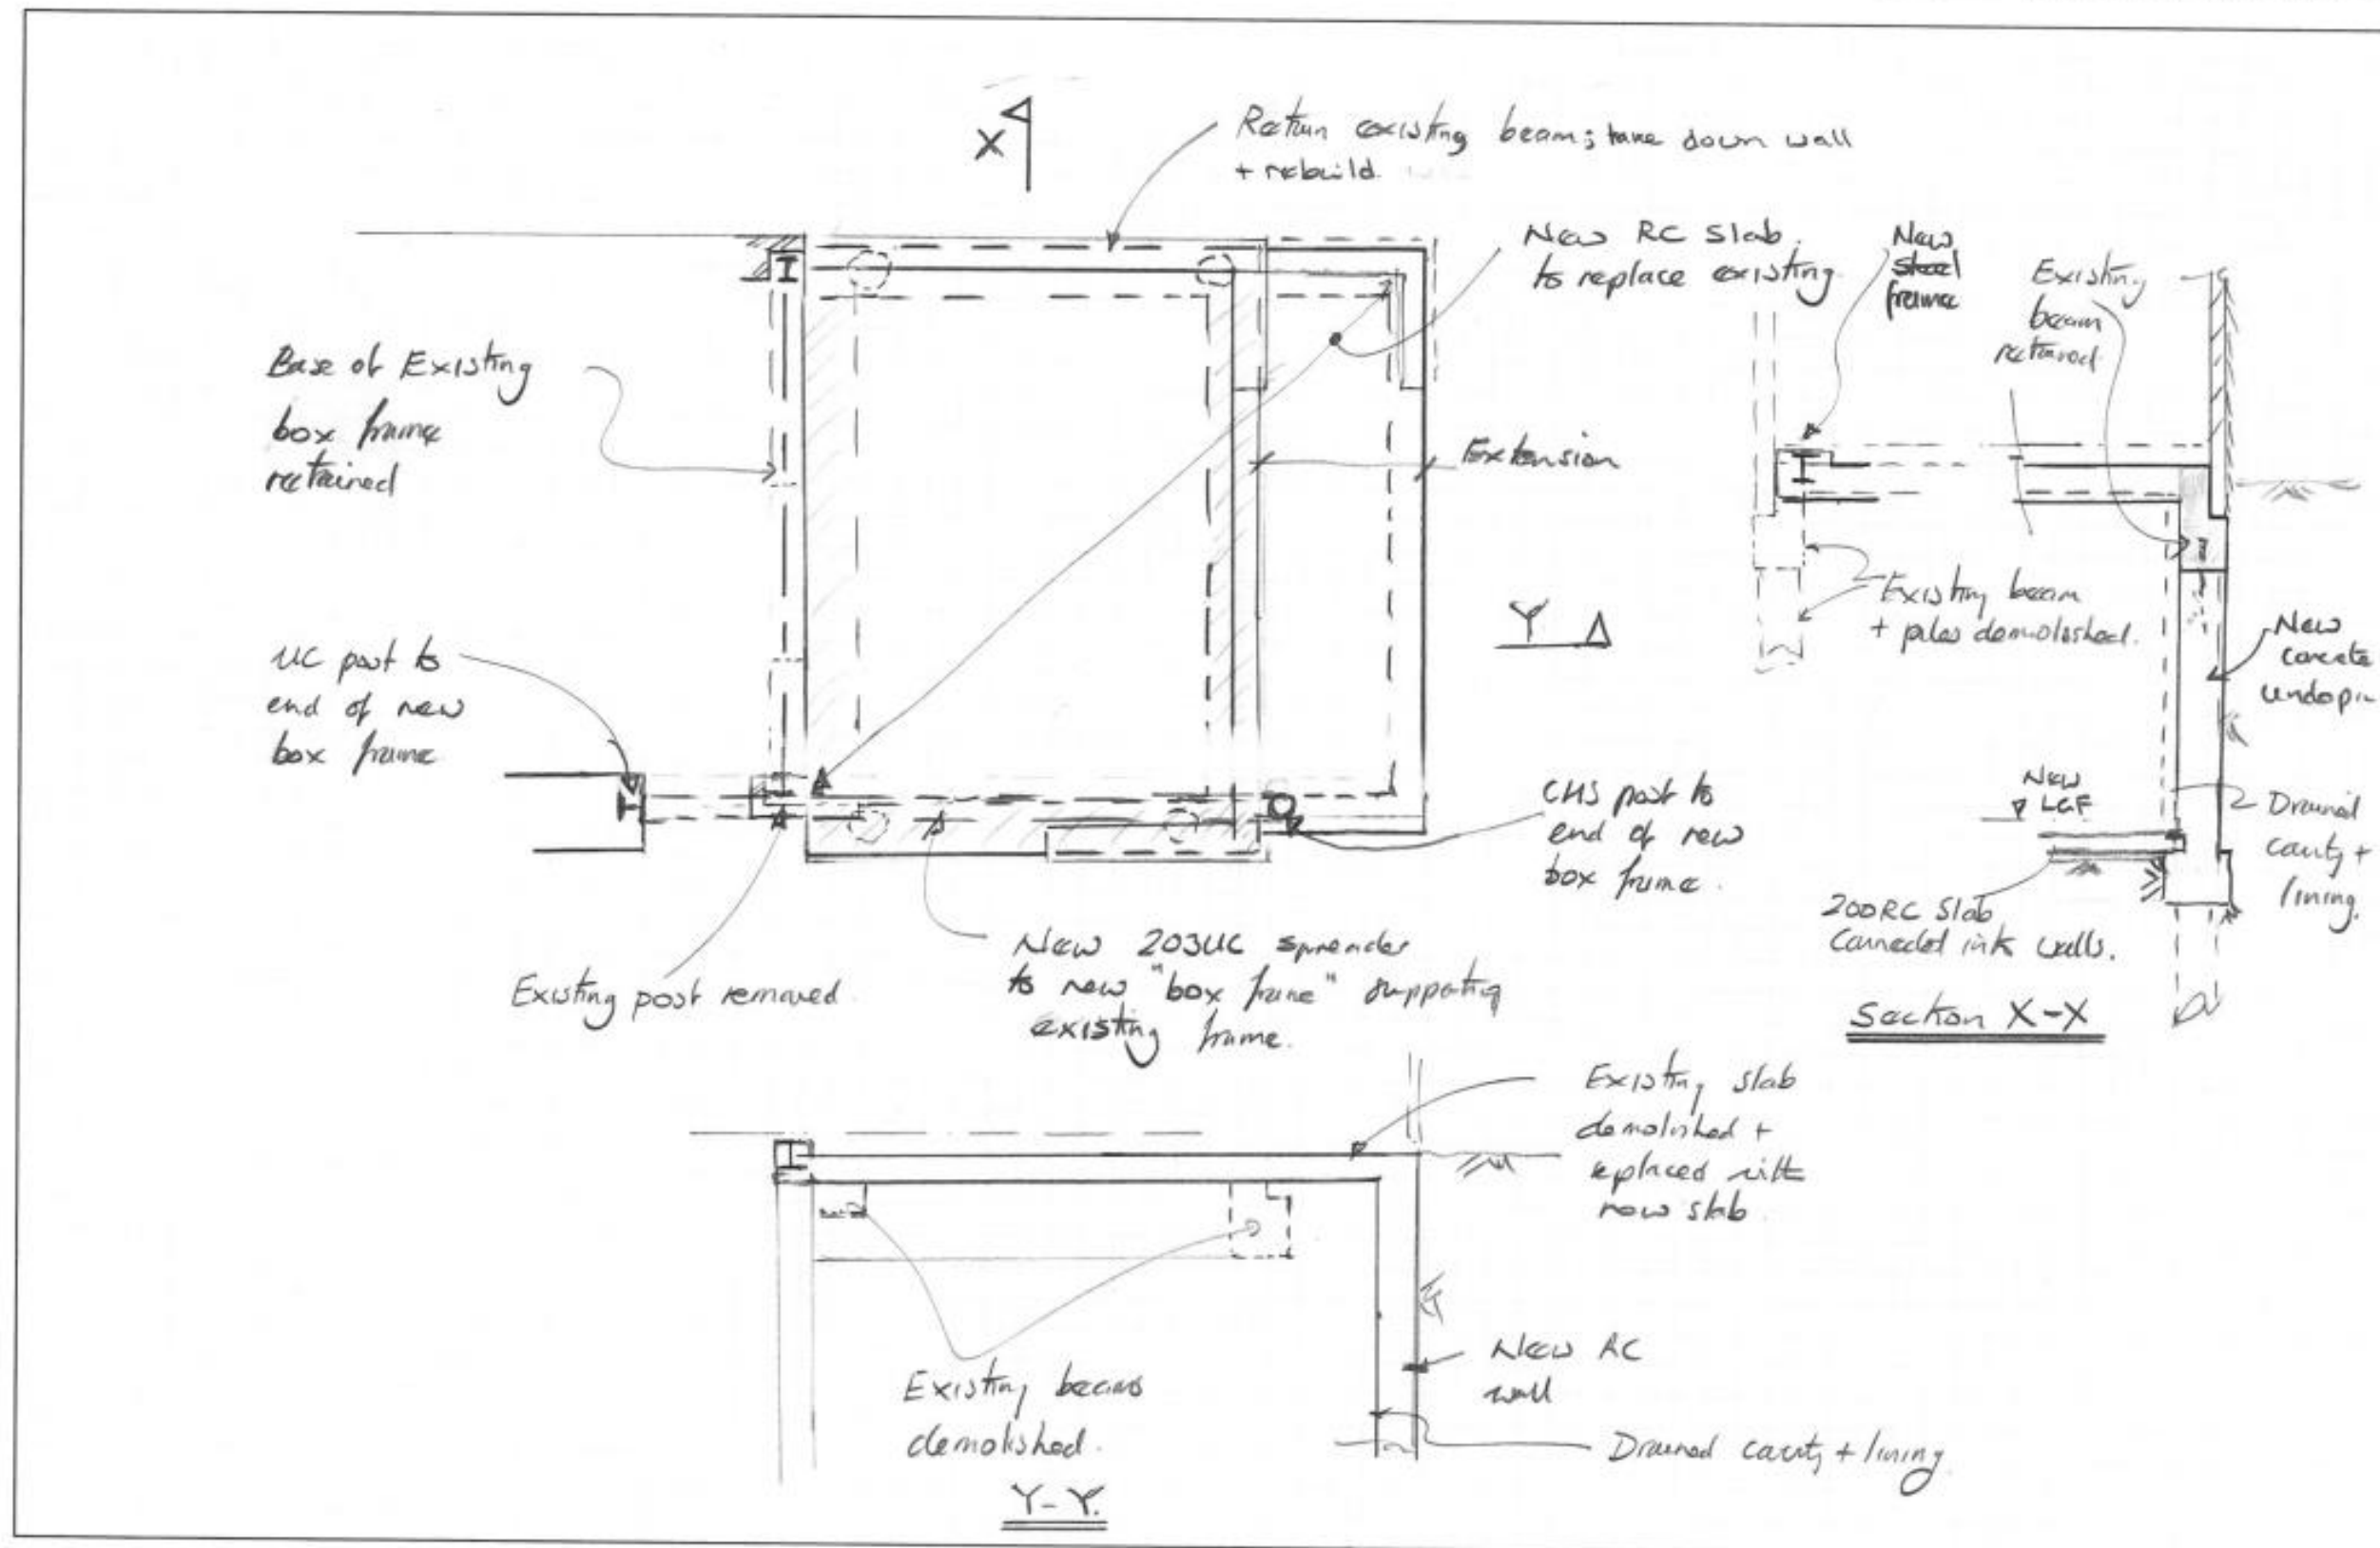 X
Retain existing beam; take down wall
+ rebuild.
New RC Slab
to replace existing
New
steel
frame
Existing
beam
retained
Base of Existing
box frame
retained
Extension
UC post to
end of new
box frame
Y
Existing beam
+ piles demolished.
New
concrete
underpin
CHS post to
end of new
box frame.
New
LGF
Drained
cavity +
lining.
200RC Slab
Connected into walls.
Section X-X
Existing post removed
New 203UC spreader
to new "box frame" supporting
existing frame.
Existing slab
demolished +
replaced with
new slab
Existing beams
demolished.
New RC
wall
Drained cavity + lining
Y-Y.